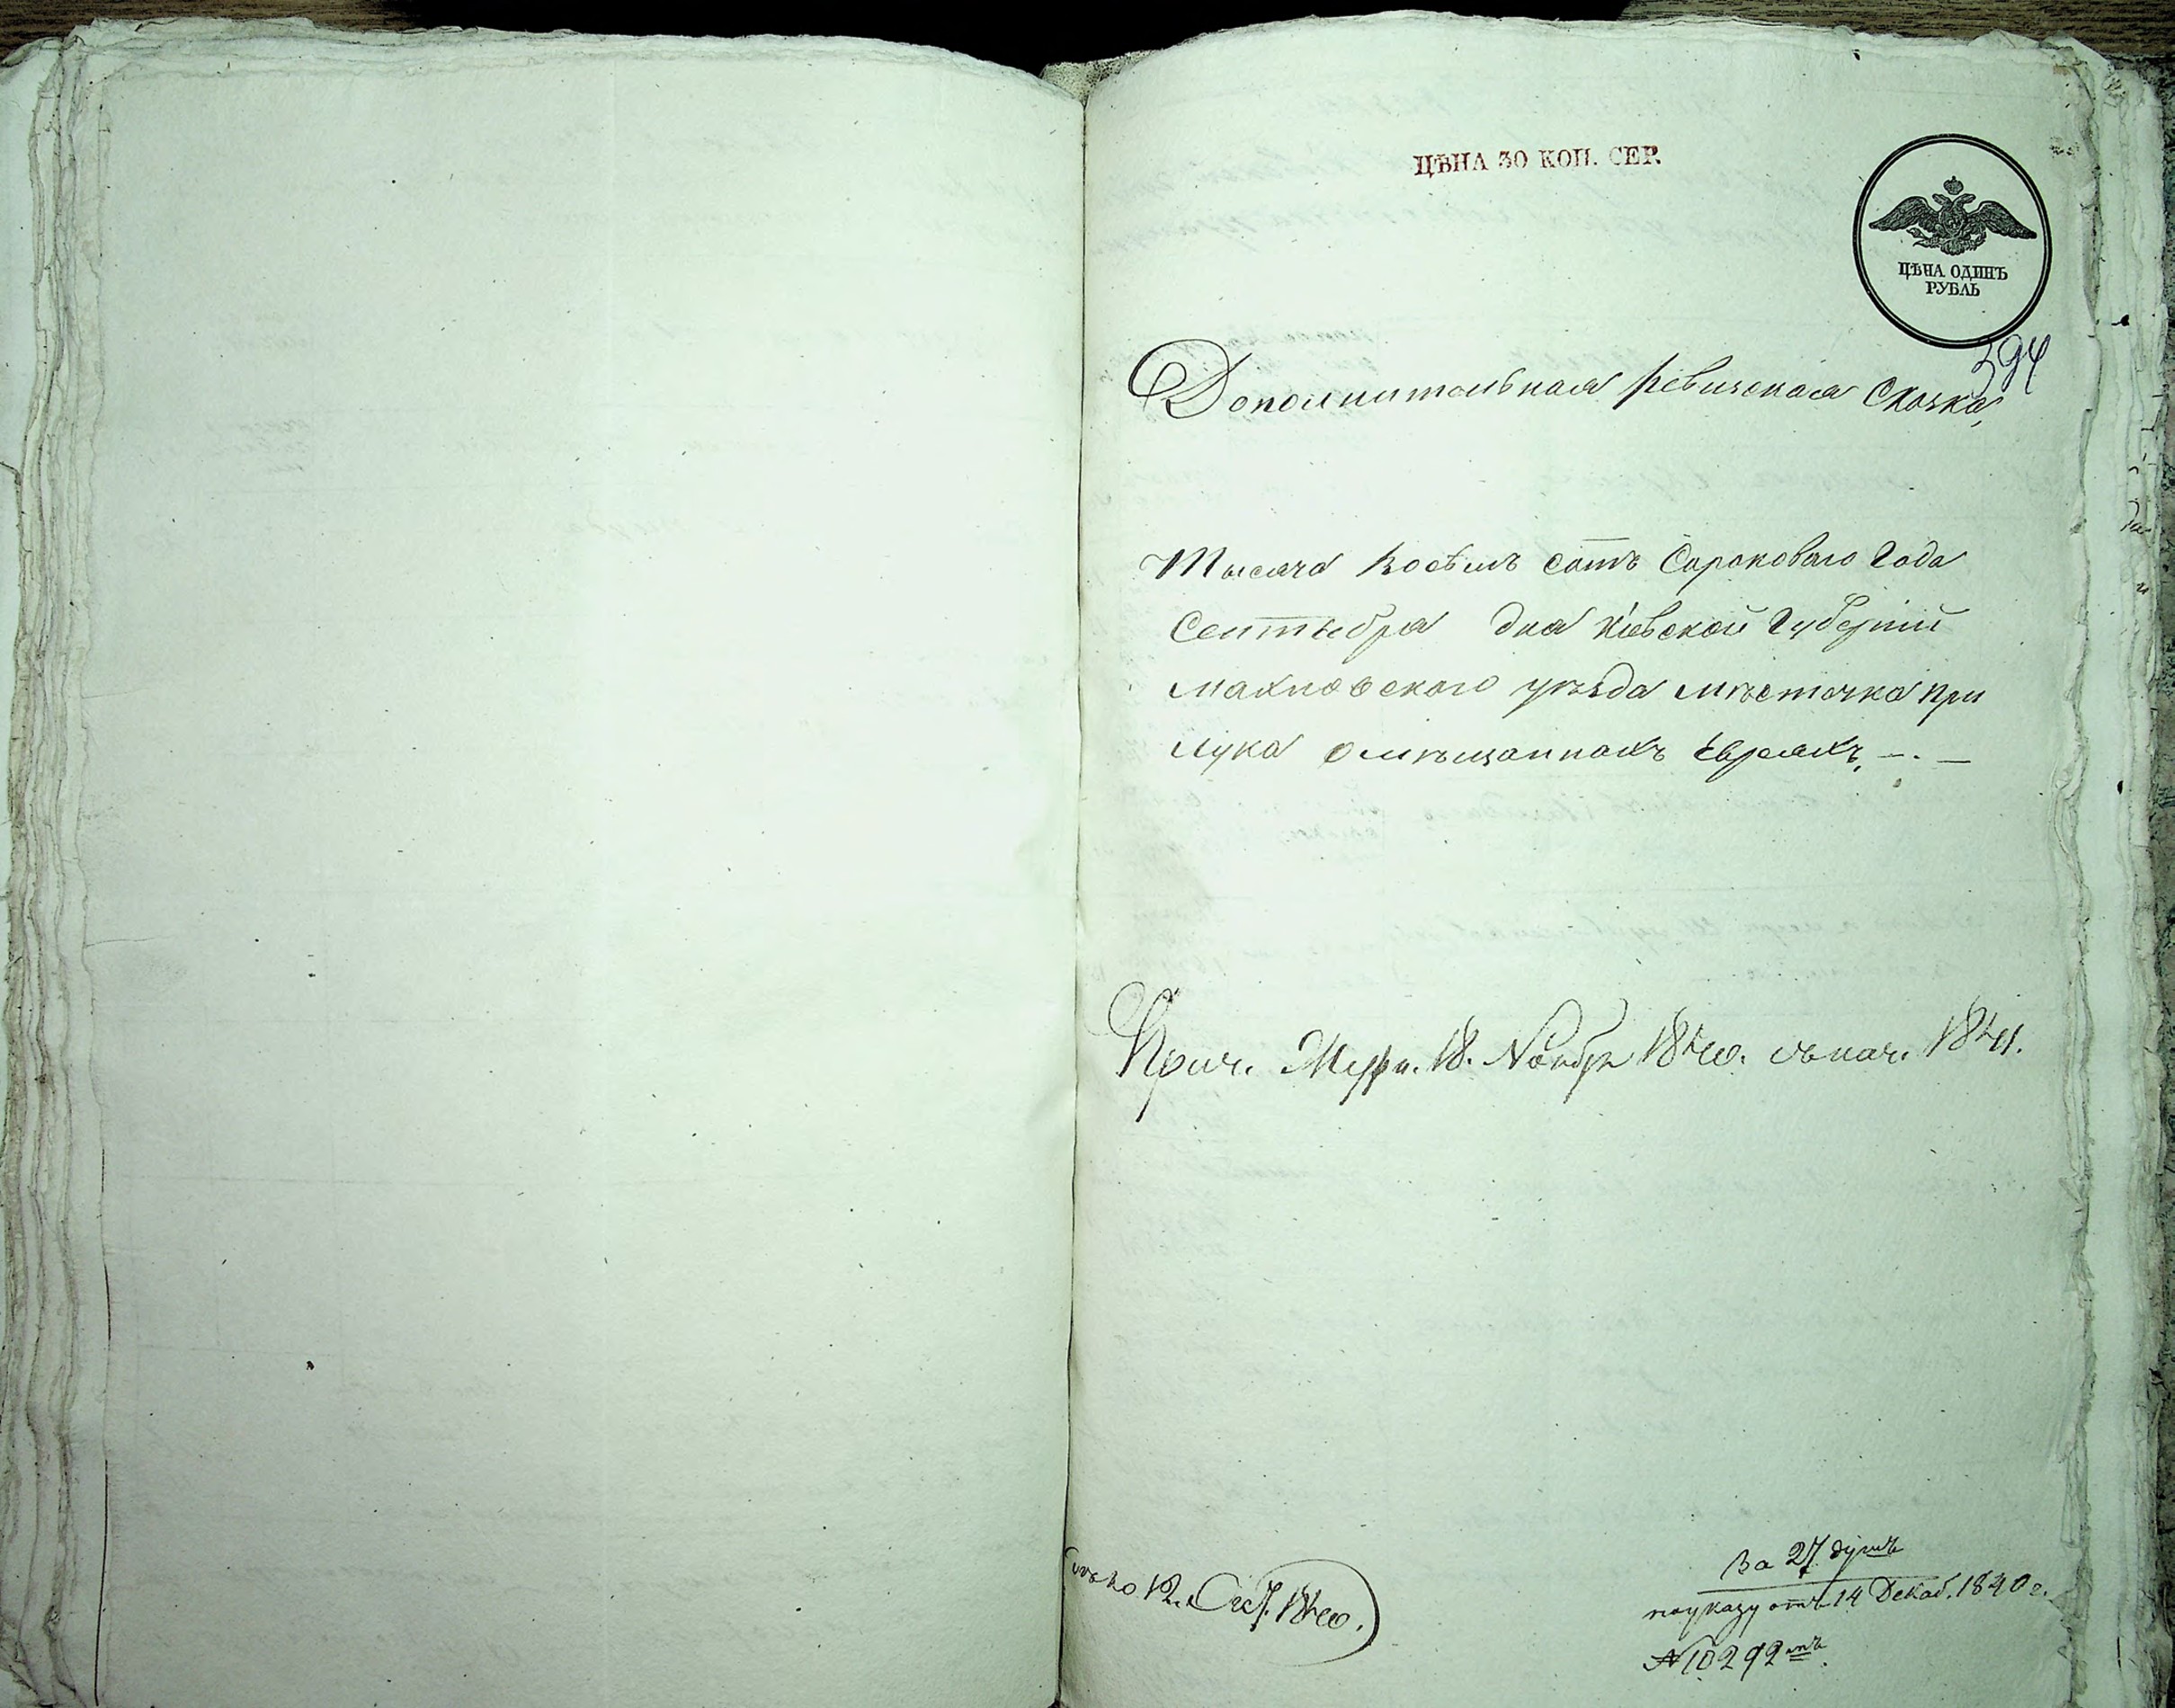 ЦѢНА 30 КОП. СЕР.
ЦѢНА ОДИНЪ
РУБЛЬ
394
Дополнительная ревизская Сказка,
Тысяча восемь сотъ Сороковаго Года
Сентября дня Кіевской Губерніи
Махновского уѣзда мѣстечка При
лука о мѣщанахъ Евреяхъ. —.—
Прич. Журн. 18. Ноябр 1840. съ нач. 1841.
12. Окт. 1840.
За 27 душъ
по указу отъ 14 Декаб. 1840 г.
№ 10292мъ.